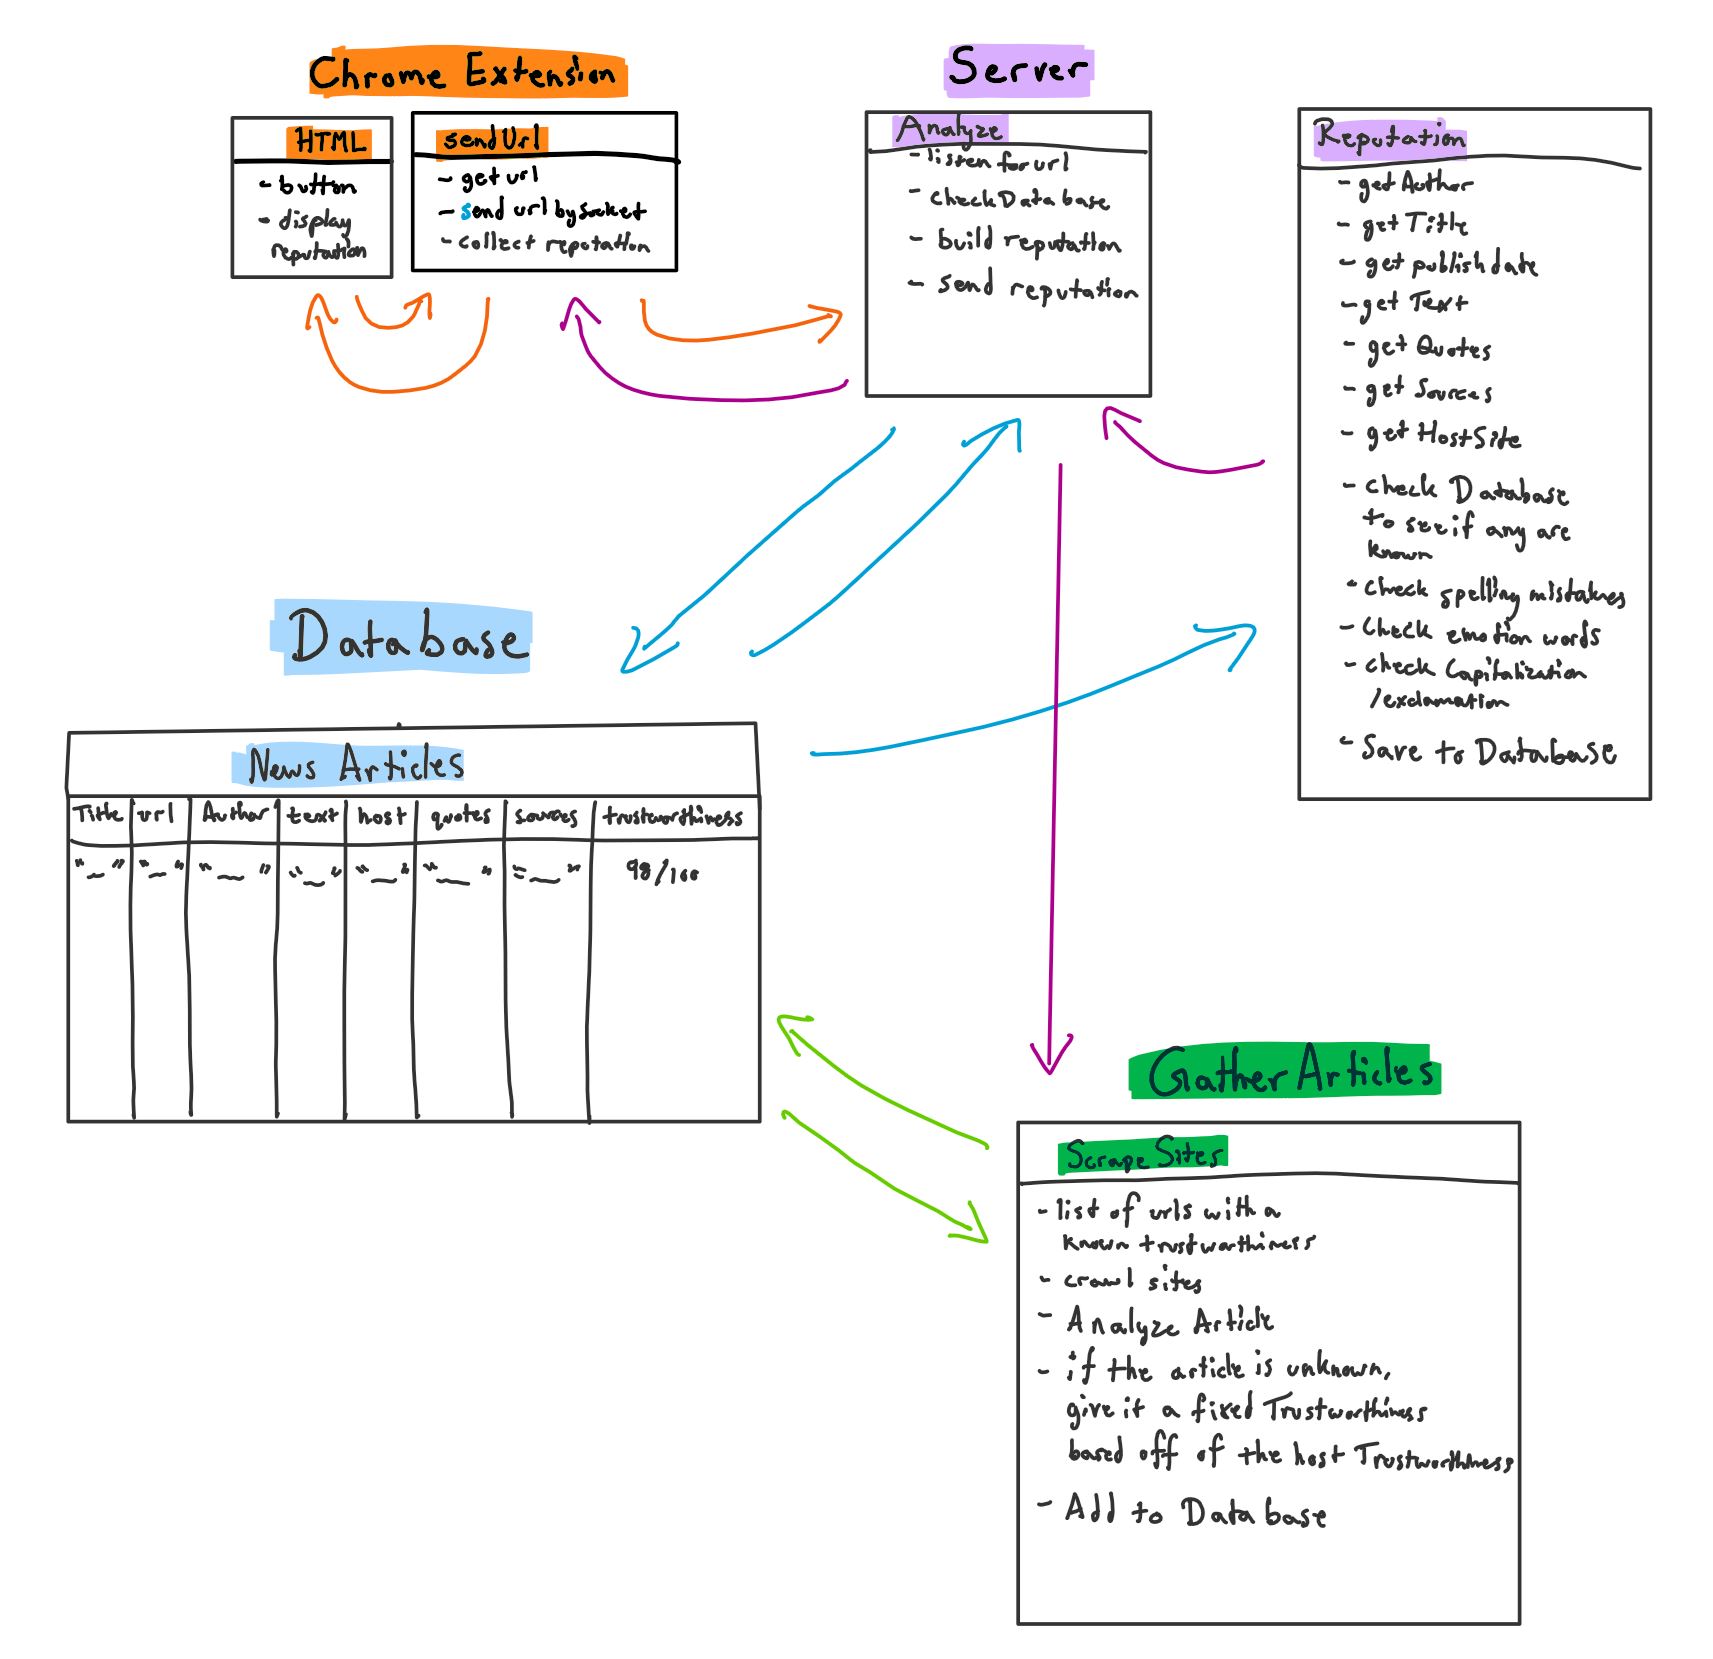 Chrome Extension
HTML
- button
- display
reputation
sendUrl
- get url
- send url by socket
- collect reputation
Server
Analyze
- listen for url
- check Database
- build reputation
- send reputation
Reputation
- get Author
- get Title
- get publish date
- get Text
- get Quotes
- get Sources
- get HostSite
- check Database
to see if any are
known
- check spelling mistakes
- Check emotion words
- check Capitalization
/exclamation
- Save to Database
Database
News Articles
Title url Author text host quotes sources trustworthiness
"_" "_" "_" "_" "_" "_" "_" 98/100
Gather Articles
Scrape Sites
- list of urls with a
known trustworthiness
- crawl sites
- Analyze Article
- if the article is unknown,
give it a fixed Trustworthiness
based off of the host Trustworthiness
- Add to Database